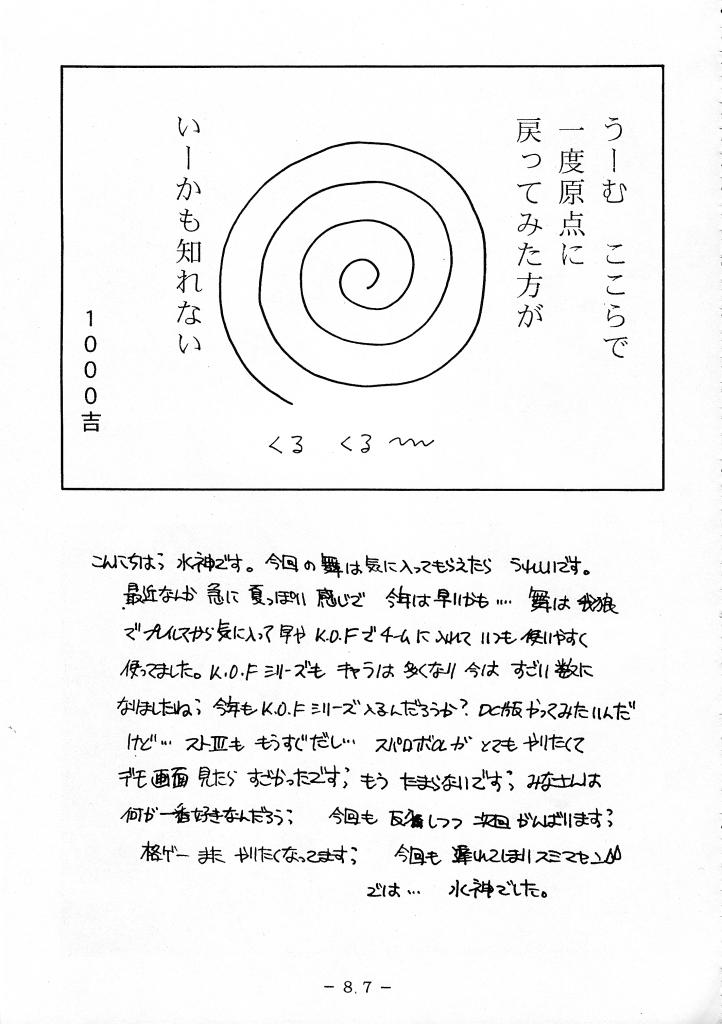 うーむ　ここらで
一度原点に
戻ってみた方が
いーかも知れない
1000吉
くる　くる 〜〜
こんにちはう 水神です。今回の舞は気に入ってもらえたら うれしいです。
最近なんか 急に 夏っぽい 感じで 今年は早いかも…. 舞は 餓狼
でプレイしてから気に入って 早や K.O.Fでチームに入れて いつも 使いやすく
使ってました。K.O.Fシリーズも キャラは 多くなり 今は すごい 数に
なりましたねぅ 今年もK.O.Fシリーズ入るんだろうか? DC版やってみたいんだ
けど… ストⅢも もうすぐだし… スパロボαが とても やりたくて
デモ画面 見たら すごかったですぅ もう たまらないですぅ みなさんは
何が一番好きなんだろうぅ 今回も 反省しつつ 次回 がんばりますぅ
格ゲー また やりたくなってますぅ 今回も 遅れてしまい スミマセン
では… 水神でした。
- 8.7 -